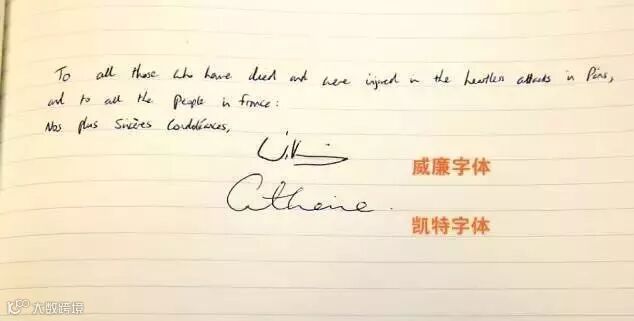 To all those who have died and were injured in the heartless attacks in Paris,
and to all the people in France:
Nos plus Sincères Condoléances,
威廉字体
Catherine
凯特字体
大数跨境